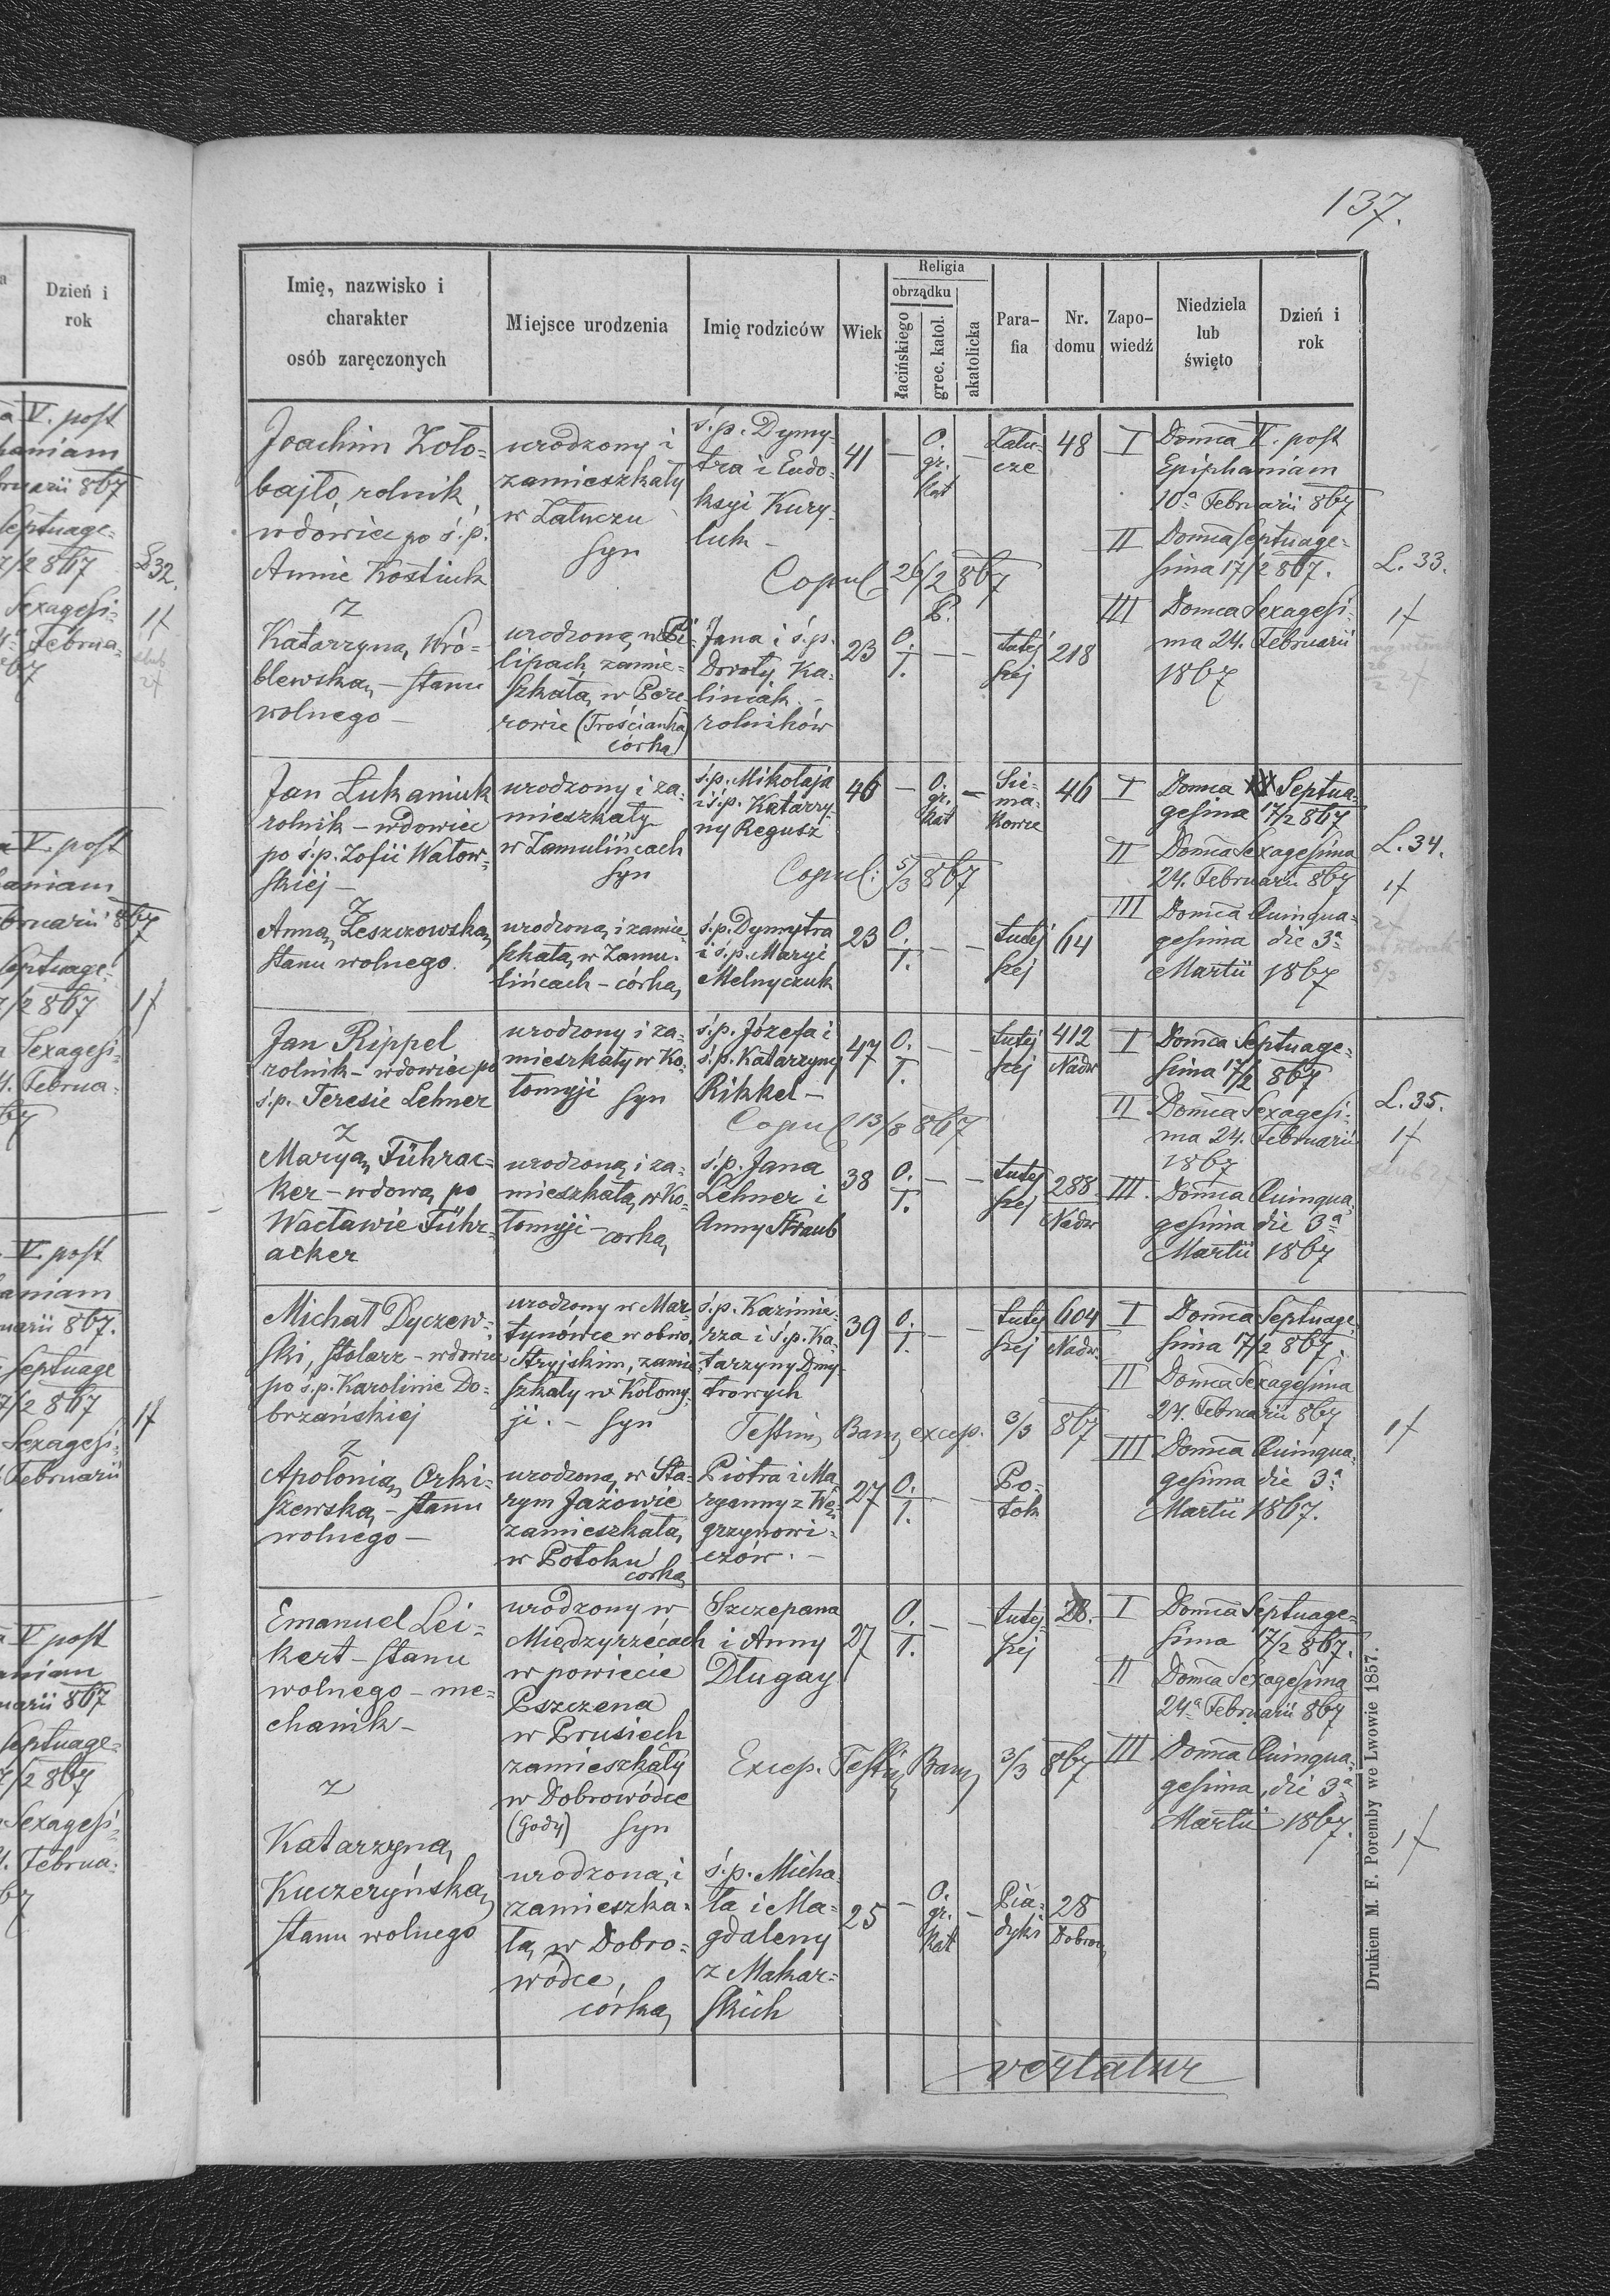 137.
Imię, nazwisko i charakter osób zaręczonych
Miejsce urodzenia
Imię rodziców
Wiek
Religia
obrządku
łacińskiego
grec. katol.
akatolicka
Parafia
Nr. domu
Zapowiedź
Niedziela lub święto
Dzień i rok
Joachim Zoło=
bajło, rolnik
wdowiec po ś.p.
Annie Kostiuk
z
Katarzyną Wró=
blewską, – stanu
wolnego –
urodzony i
zamieszkały
w Załuczu
syn
urodzoną w
lipach zamie=
szkałą w Pere
rowie (Trościanka)
córką
ś.p. Dymy=
tra i Eudo=
ksyi Kury=
luk –
Copul 26/2 867
Jana i ś.p.
Doroty Ka=
liniak. –
rolników
41 – O. gr. Kat –
Zału=
cze
48
23 O. ł. – –
tutej
szej
218
I Domca V. post
Epiphaniam
10a Februarii 867
II Domca Septuage=
sima 17/2 867.
III Domca Sexagesi=
ma 24. Februarii
1867
L. 33.
Jan Łukaniuk
rolnik – wdowiec
po ś.p. Zofii Watow=
skiej –
z
Anną Leszczowską
stanu wolnego.
urodzony i za=
mieszkały
w Zamulińcach
syn
urodzoną i zamie=
szkałą w Zamu=
lińcach – córką
ś.p. Mikołaja
i ś.p. Katarzy=
ny Regusz
Copul: 5/3 867
ś.p. Dymytra
i ś.p. Maryi
Melnyczuk
46 – O. gr. Kat –
Sie=
ma=
kowce
46
23 O. ł. – –
tutej
szej
64
I Domca Septua=
gesima 17/2 867
II Domca Sexagesima
24. Februarii 867
III Domca Quinqua=
gesima die 3a
Martii 1867
L. 34.
Jan Rippel
rolnik – wdowiec po
ś.p. Teresie Lehner
z
Maryą Führac=
ker – wdową po
Wacławie Führ=
acker
urodzony i za=
mieszkały w Ko=
łomyji syn
urodzoną i za=
mieszkałą w Ko=
łomyji – córką
ś.p. Józefa i
ś.p. Katarzyny
Rikkel –
Copul 13/8 867
ś.p. Jana
Lehner i
Anny Straub
47 O. ł. – –
tutej
szej
412
Nadw
38 O. ł. – –
tutej
szej
288
Nadw
I Domca Septuage=
sima 17/2 867
II Domca Sexagesi=
ma 24. Februarii
1867
III. Domca Quinqua=
gesima die 3a
Martii 1867
L. 35.
Michał Dyczew=
ski, stolarz – wdowiec
po ś.p. Karolinie Do=
brzańskiej
z
Apolonią Orki=
szewską – stanu
wolnego –
urodzony w Mar=
tynówce w obwo.
Stryjskim, zamie=
szkały w Kołomy=
ji. – syn
urodzoną w Sta=
rym Jażowie
zamieszkałą
w Potoku
córką
ś.p. Kazimie=
rza i ś.p. Ka=
tarzyny Dmy=
trowych
Testim Bann excep. 3/3 867
Piotra i Ma
ryanny z Wę=
grzynowi=
czów. –
39 O. ł. – –
tutej
szej
604
Nadw.
27 O. ł. – –
Po=
tok
I Domca Septuage=
sima 17/2 867.
II Domca Sexagesima
24. Februarii 867
III Domca Quinqua=
gesima die 3a
Martii 1867.
Emanuel Lei=
kert – stanu
wolnego – me=
chanik –
z
Katarzyną
Kuczeryńską
stanu wolnego
urodzony w
Międzyrzécach
w powiecie
Pszczena
w Prusiech
zamieszkały
w Dobrowódce
(Gody) syn
urodzoną i
zamieszka=
łą w Dobro=
wódce,
córką
Szczepana
i Anny
Długay
Excep. Testim Bann 3/3 867
ś.p. Micha=
ła i Ma=
gdaleny
z Makar=
skich
27 O. ł. – –
tutej=
szej
28.
25 – O. gr. Kat –
Pia=
dyki
28
Dobrow
I Domca Septuage=
sima 17/2 867.
II Domca Sexagesima
24a Februarii 867
III Domca Quinqua=
gesima, die 3a
Martii 1867.
vertatur
Drukiem M. F. Poremby we Lwowie 1857.
Dzień i rok
V. post
L 32.